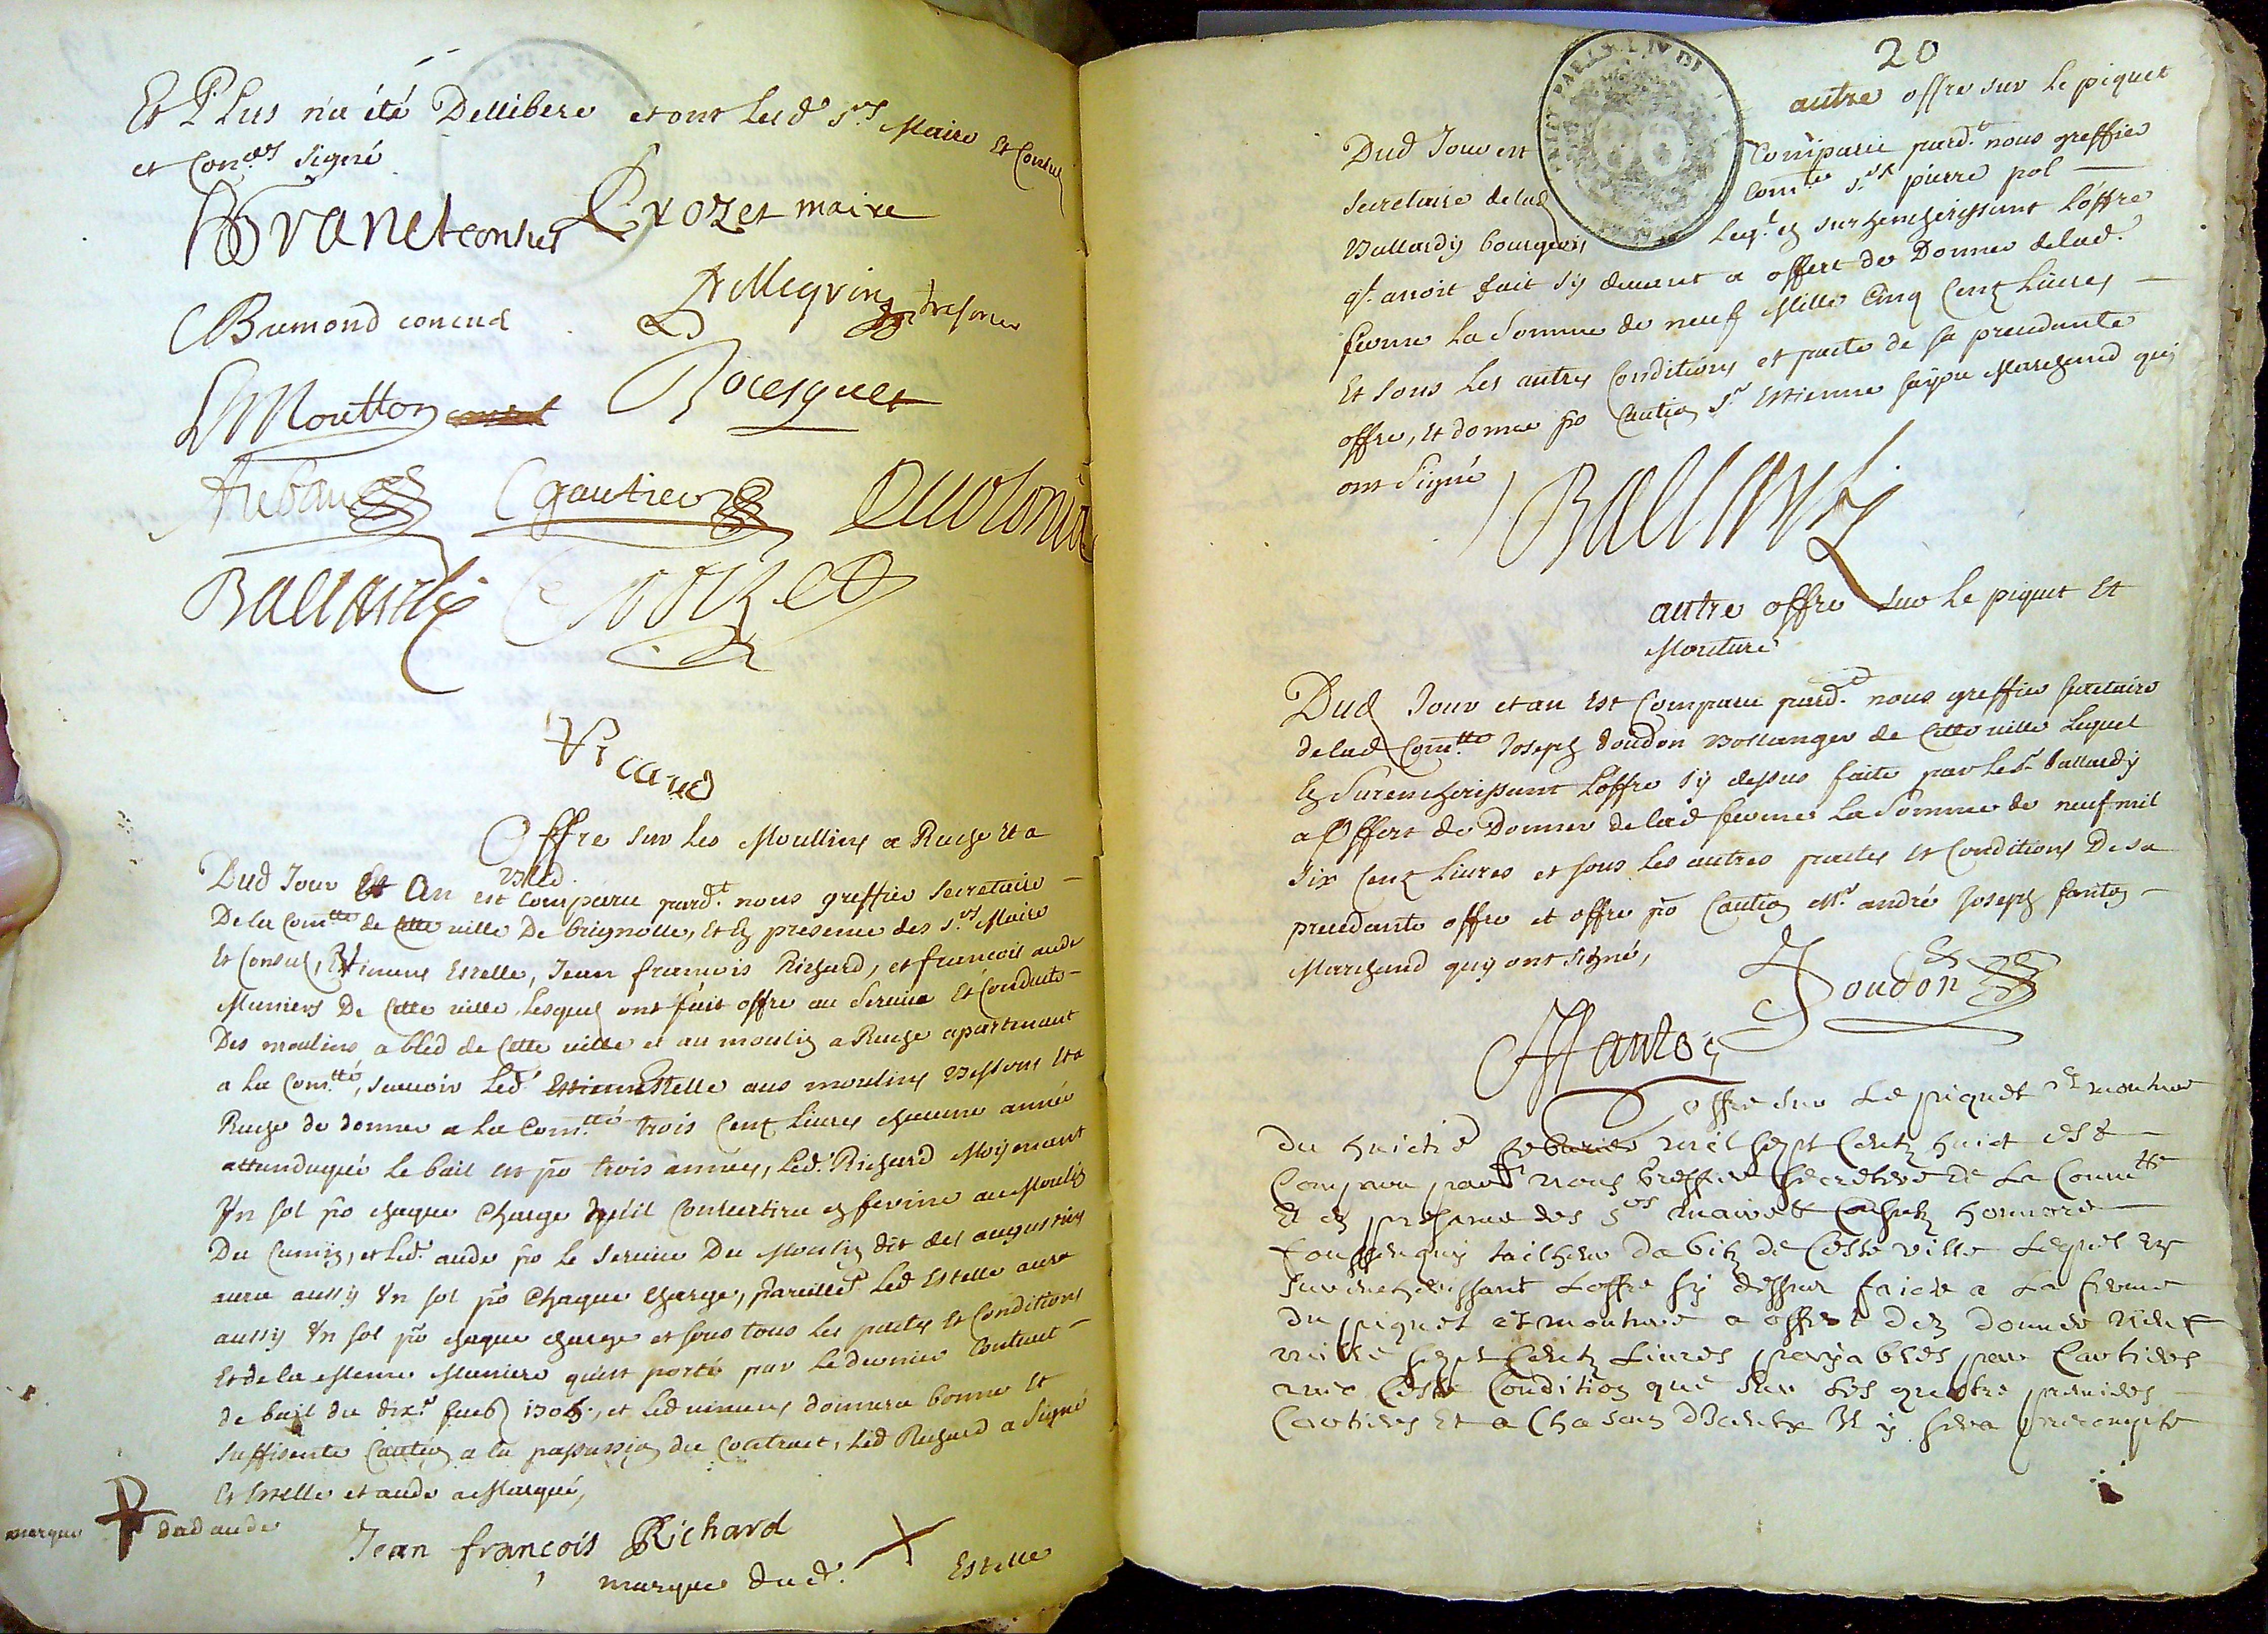 Et Plus n'a été Dellibere et ont lesd. Srs Maire Et Consuls
et Coners signé
Branet consul Crozet maire
Bremond concul Pellegrin tresorier
Moutton Rocesquet
Aubau Cgautier Ducolonia
Ballardy Crozet
Vicard
Offre sur les Moullins a Ruche et a
Bled.
Dud Jour Et An est Comparu pard.t nous greffier Secretaire
De la Com.tté de Cette ville De brignolle, Et En presence des S.rs Maire
Et Consul, Estienne Estelle, Jean françois Richard, et françois aude
Muniers De Cette ville, Lesquel ont fait offre au Service Et Conduite
Des moulins a bled de Cette ville et au moulin a Ruche apartenant
a la Com.tté, scavoir Led. Estienne Estelle aus moulins Bessons Et a
Ruche de donner a la Com.tté trois Cent Livres chacune année
attanduque le bail est po trois années, Led. Richard Moyenant
Un sol po chaque Charge quil Convertira en ferine au Moulin
Du Camin, et Led. aude po le service Du Moulin dit des augustins
aura aussy Un sol po Chaque charge, pareillet Led Estelle aura
aussy Un sol po chaque charge et sous tous les pactes Et Conditions
Et de la Meme Maniere quest porté par le dernier Contract
de bail du dix.e 1706, et Led muniers donnera bonne Et
suffisente Caution a la passassion du Contract, Led Richard a Signé
Et Estelle et aude a Marqué,
marque dud aude
Jean françois Richard
marque dud. Estelle
20
autre offre sur le piquet
Dud Jour est Comparu pard.t nous greffier
Secretaire delad Com.té S.r pierre pol
Ballardy bourgeois Leq.l En surhencherissant Loffre
q.l avoit fait sy devant a offert de Donner delad.
ferme La Somme de neuf Mille Cinq Cent Livres
Et sous Les autres Conditions et pacte de sa precedante
offre, Et donne po Caution S.r Estienne Marchand quy
ont Signé
Ballardy
autre offre sur le piquet Et
Mouture
Dud Jour et an Est Comparu pard.t nous greffier secretaire
delad Com.tté Joseph doudon Boullanger de Cette ville Lequel
En Surencherissant Loffre sy dessus faite par le S.r Ballardy
a Offert de Donner delad ferme La Somme de neuf mil
Six Cent Livres et sous Les autres pactes Et Conditions De sa
precedante offre et offre po Caution M.r andré Joseph fanton
Marchand quy ont signé,
Doudon
Fanton
Offre sur Le piquet Et mouture
Du huictie febvrier mil sept Centz huict est
Comparu pard.t nous Greffier secretere de La Comm.tté
Et en presance des S.rs maire & Consulz honnore
tailheur dabitz de Ceste ville Lequel en
surencherissant Loffre sy dessus faicte a La ferme
du piquet et mouture a offert den donner neuf
mille sept Centz Livres payables par Cartiers
avec Ceste Condition que sur Les quattre premiers
Cartiers Et a Chascun diceulx Il y sera precompte